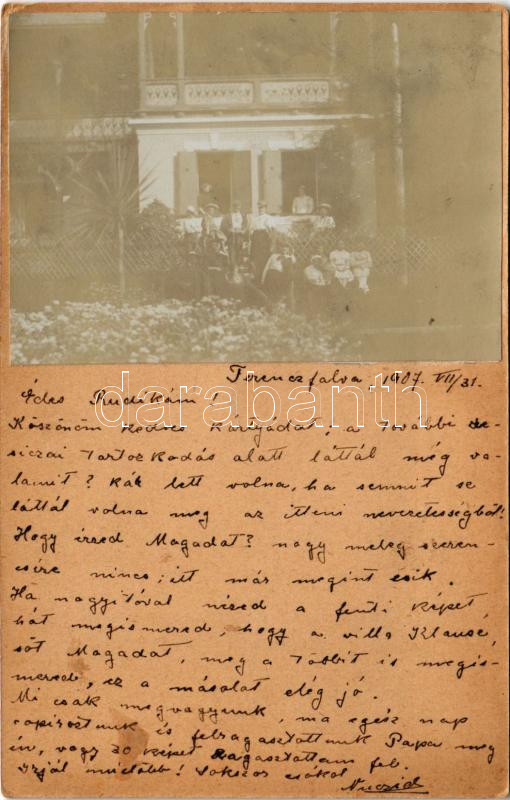 Ferenczfalva, 1907. VII/31.
Édes Rudikám!
Köszönöm kedves kártyádat; a további re-
siczai tartozkodás alatt láttál még va-
lamit? kár lett volna, ha semmit se
láttál volna meg az itteni nevezetességből!
Hogy érzed Magadat? nagy meleg szeren-
csére nincs; itt már megint esik.
Ha nagyitóval nézed a fenti képet,
hát megismered, hogy a villa Klausé,
sőt Magadat, meg a többit is megis-
mered, ez a másolat elég jó.
Mi csak megvagyunk, ma egész nap
papiroztunk és felragasztottunk Papa meg
én, vagy 20 képet ragasztottam fel.
Irjál mielőbb! Sokszor csókol
darabanth